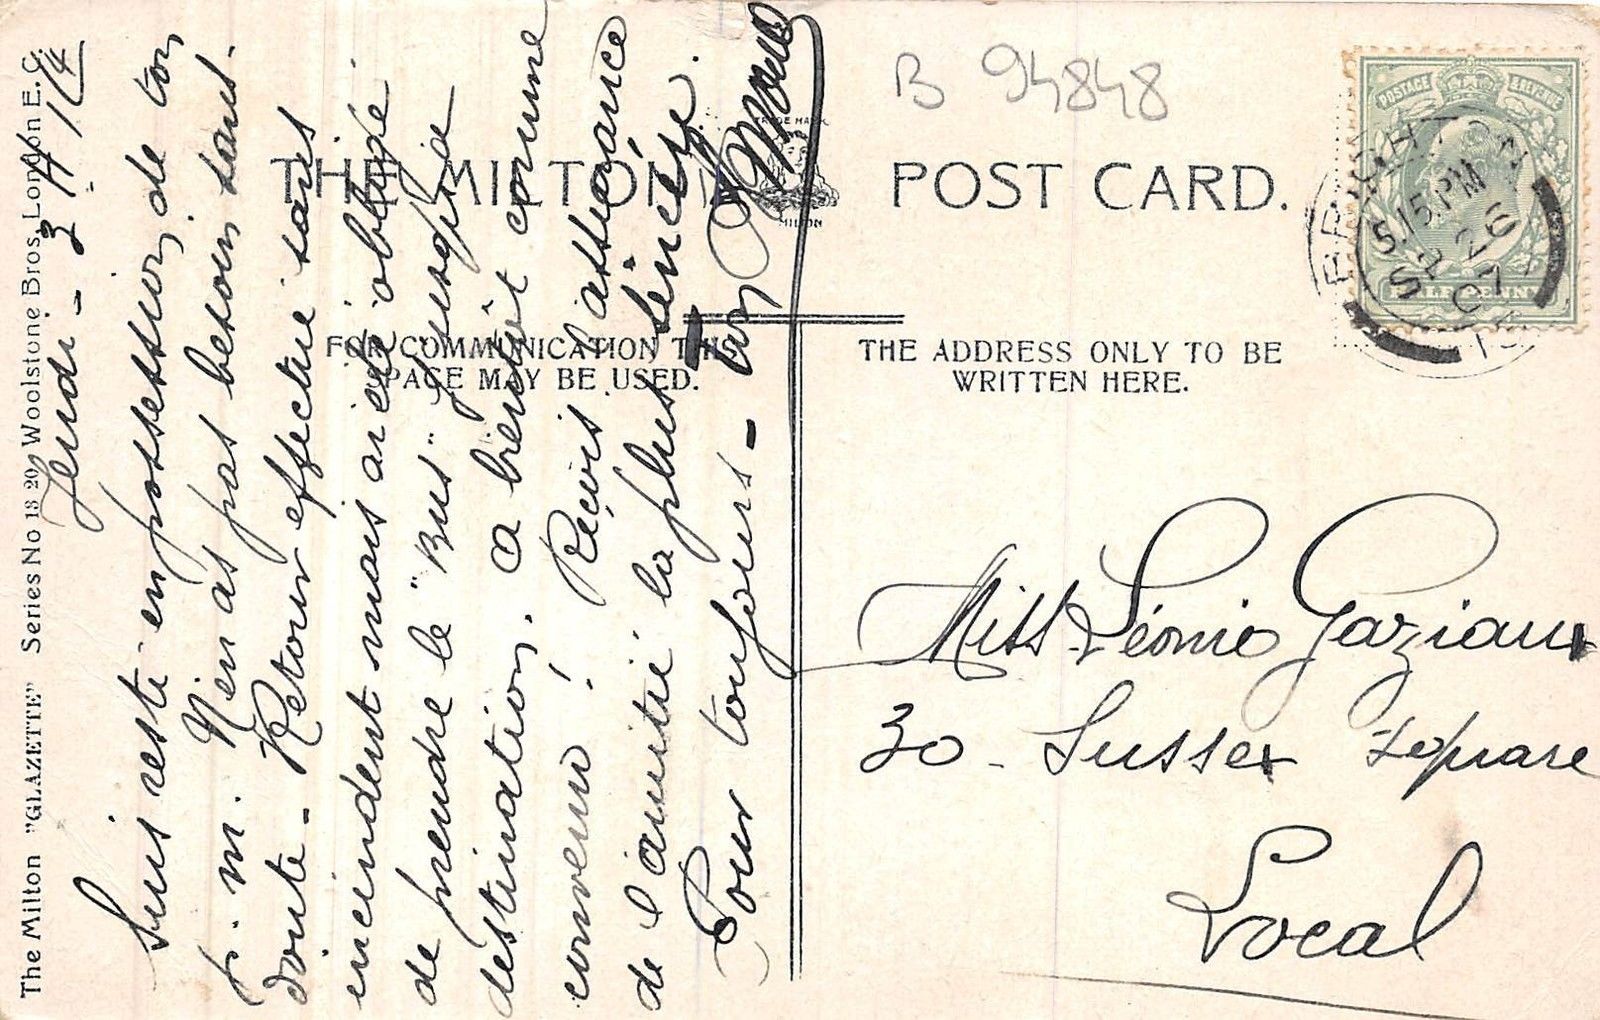 The Milton "GLAZETTE" Series No 13 20 Woolstone Bros, London E.C.
Jeudi - 3 H 1/4
Suis resté en possession de ton
p. m. N'en as pas besoin sans
doute - Retour effectué sans
incindent mais ai été obligé
de prendre le "Bus" jusqu'à
destination. A bientôt comme
convenu! Reçois l'assurance
de l'amitié la plus sincère.
Pour toujours - ton
THE MILTON
TRADE MARK
MILTON
POST CARD.
FOR COMMUNICATION THIS
SPACE MAY BE USED.
THE ADDRESS ONLY TO BE
WRITTEN HERE.
B 94848
POSTAGE & REVENUE
HALF PENNY
BRIGHTON
5.15 PM
SP 26
07
Miss Léonie Gaziaux
30 - Sussex Square
Local